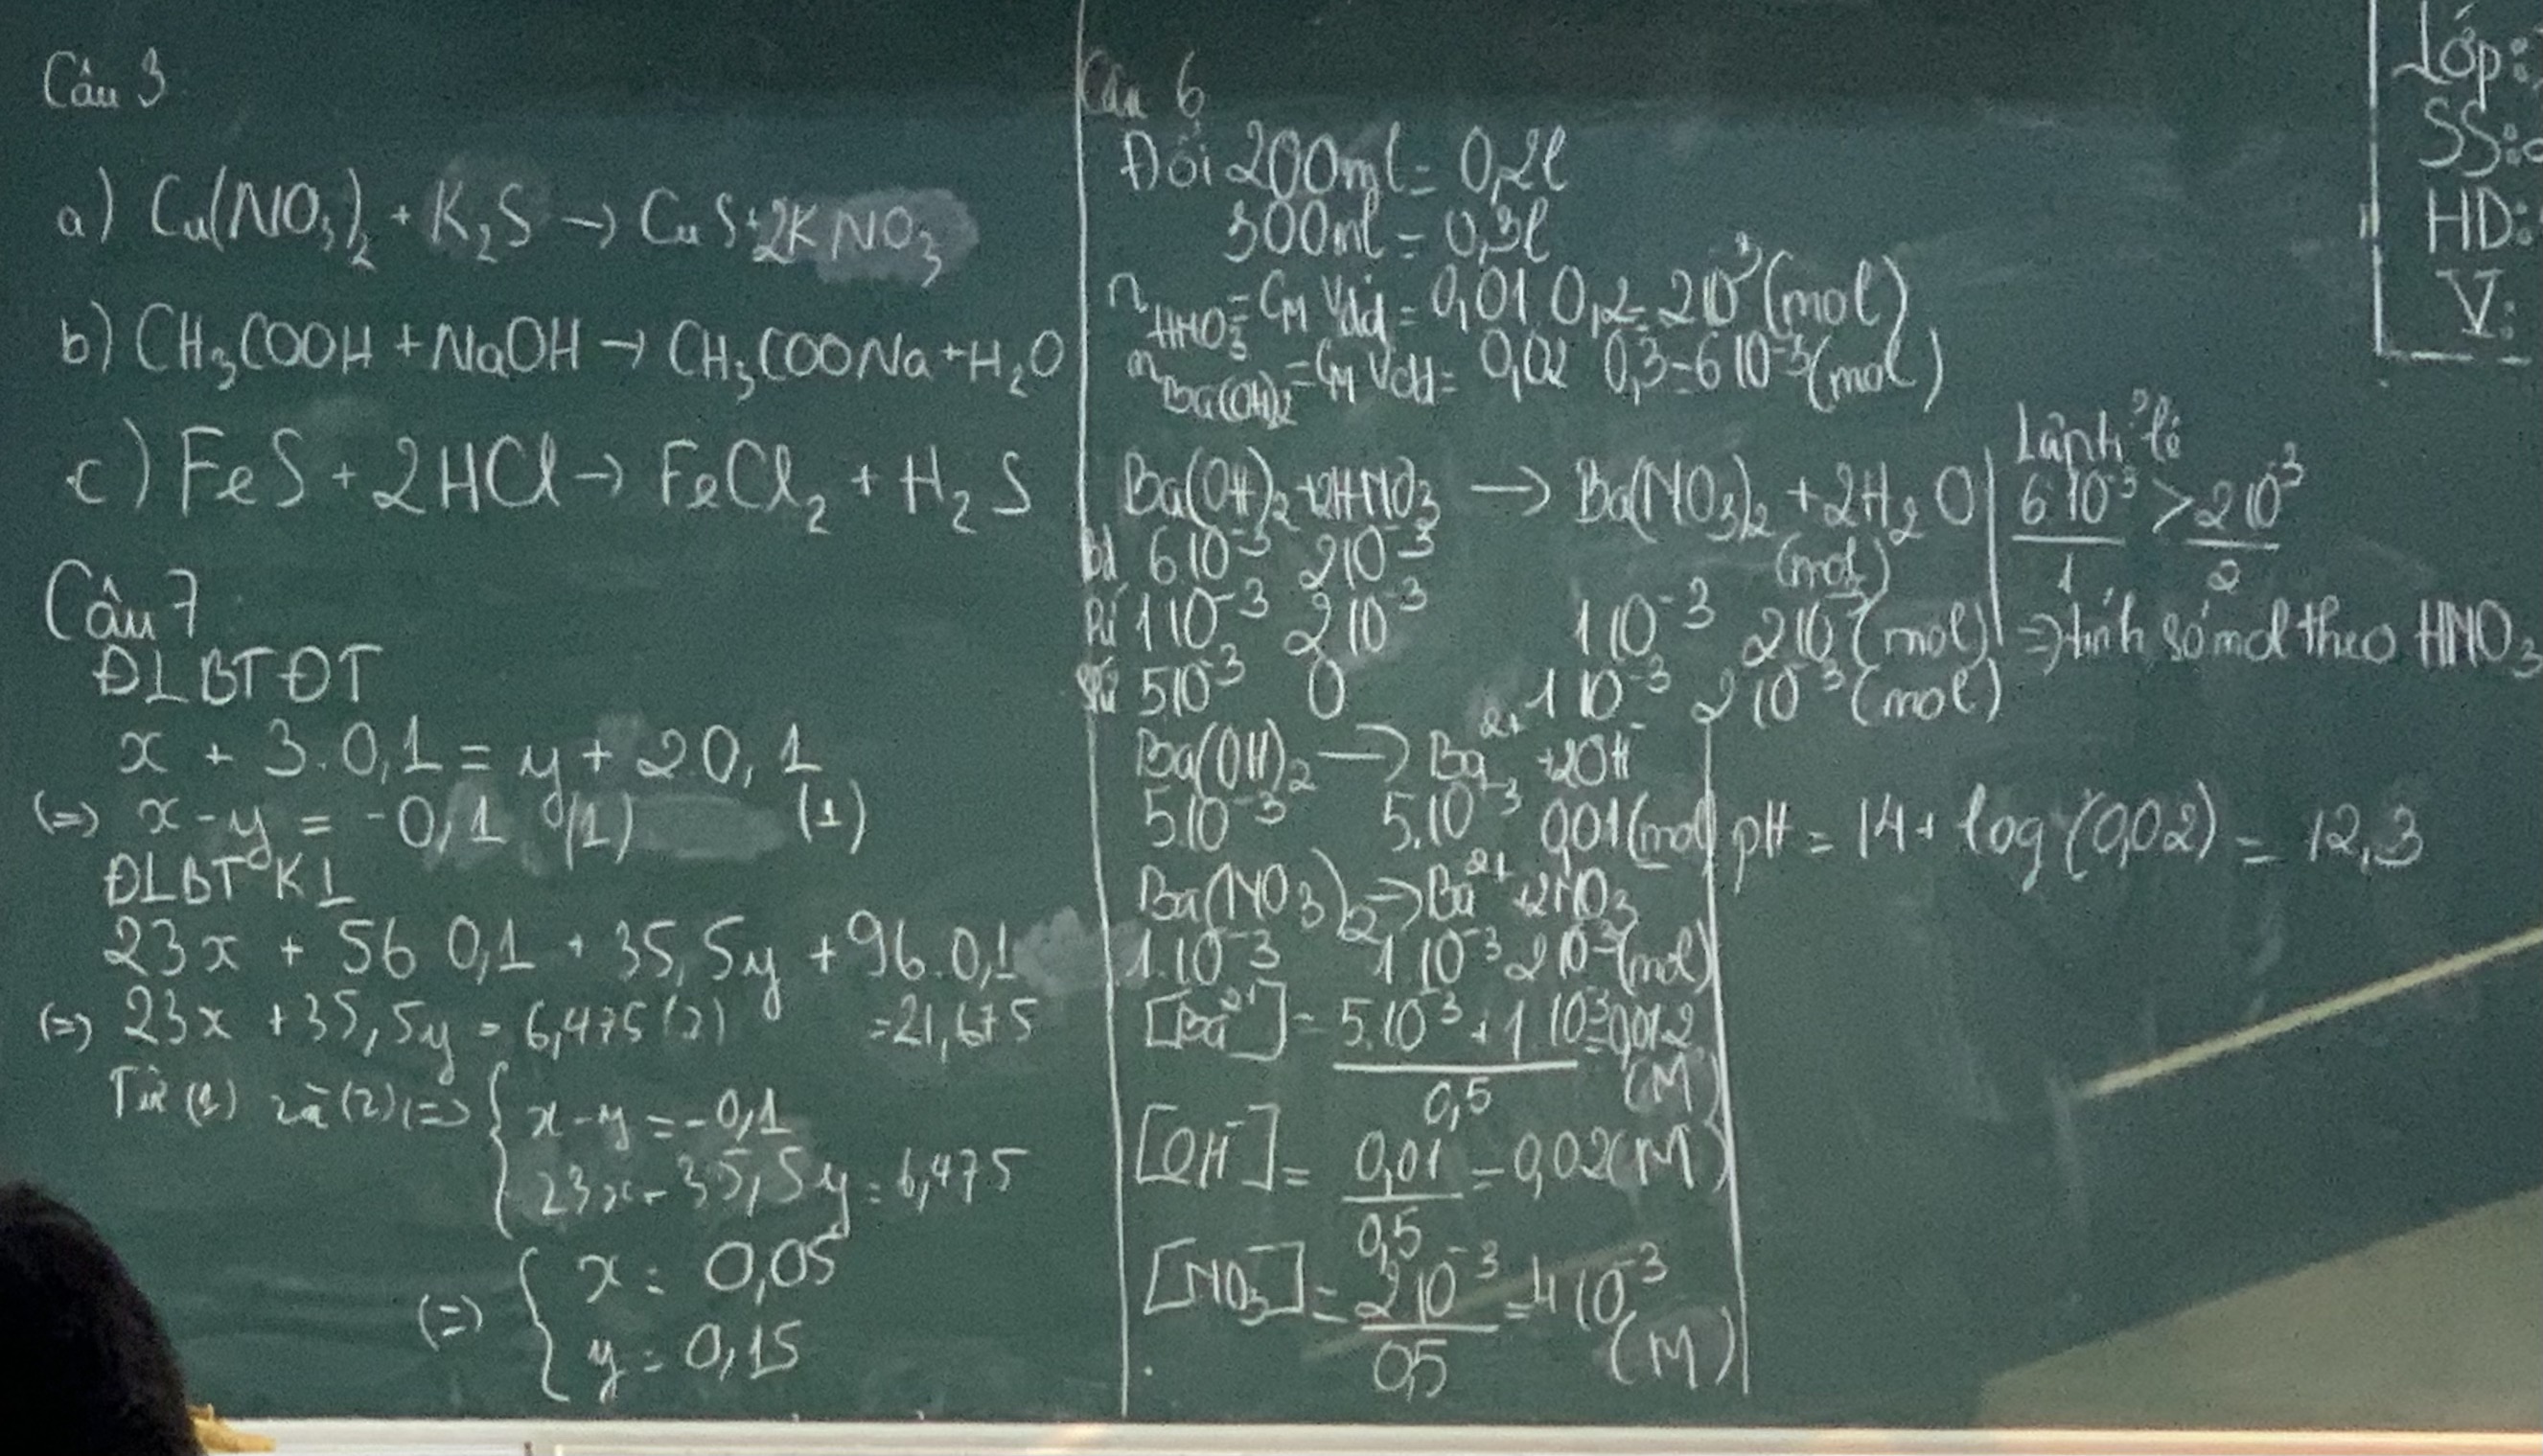 Câu 3
a) Cu(NO₃)₂ + K₂S → CuS + 2KNO₃
b) CH₃COOH + NaOH → CH₃COONa + H₂O
c) FeS + 2HCl → FeCl₂ + H₂S
Câu 7
ĐLBTĐT
x + 3.0,1 = y + 20,1
(=) x - y = -0,1 (1) (1)
ĐLBTKL
23x + 56 0,1 + 35,5y + 96.0,1
= 21,675
(=) 23x + 35,5y = 6,475 (2)
Từ (1) và (2) (=> { x - y = -0,1
23x - 35,5y = 6,475
(=) { x = 0,05
y = 0,15
Câu 6
Đổi 200ml = 0,2l
300ml = 0,3l
n HNO₃ = CM Vdd = 0,01 0,2 = 2 10⁻³ (mol)
n Ba(OH)₂ = CM Vdd = 0,02 0,3 = 6 10⁻³ (mol)
Ba(OH)₂ + 2HNO₃ → Ba(NO₃)₂ + 2H₂O
bđ 6 10⁻³ 2 10⁻³ (mol)
Pứ 1 10⁻³ 2 10⁻³ 1 10⁻³ 2 10⁻³ (mol)
5 10⁻³ 0 1 10⁻³ 2 10⁻³ (mol)
Lập tỉ lệ
6 10⁻³/1 > 2 10⁻³/2
=> tính số mol theo HNO₃
Ba(OH)₂ → Ba²⁺ + 2OH⁻
5.10⁻³ 5.10⁻³ 0,01 (mol)
Ba(NO₃)₂ → Ba²⁺ + 2NO₃
1.10⁻³ 1.10⁻³ 2 10⁻³ (mol)
[Ba²⁺] = 5.10⁻³ + 1 10⁻³ / 0,5 = 0,012 (M)
[OH⁻] = 0,01 / 0,5 = 0,02 (M)
[NO₃⁻] = 2 10⁻³ / 0,5 = 4 10⁻³ (M)
pH = 14 + log (0,02) = 12,3
Lớp:
SS:
HD:
V: